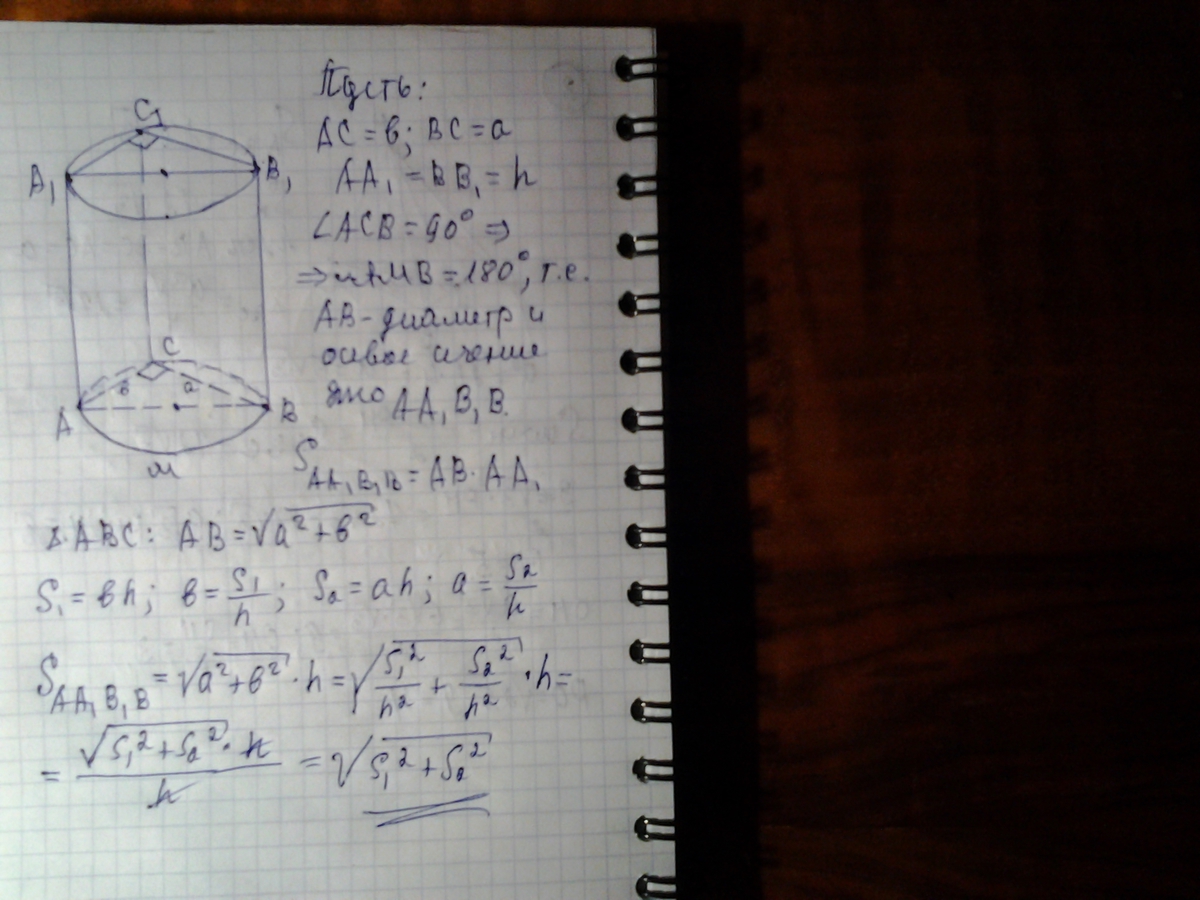 Пусть:
AC = в; BC = a
AA₁ = BB₁ = h
∠ACB = 90° ⇒
⇒ ◡AMB = 180°, т.е.
AB - диаметр и
осевое сечение
это AA₁B₁B.
S_AA₁B₁B = AB · AA₁
C₁
A₁
B₁
C
в
a
A
B
M
Δ ABC: AB = √(a² + в²)
S₁ = вh; в = S₁/h; S₂ = ah; a = S₂/h
S_AA₁B₁B = √(a² + в²) · h = √(S₁²/h² + S₂²/h²) · h =
= (√(S₁² + S₂²) · h)/h = √(S₁² + S₂²)